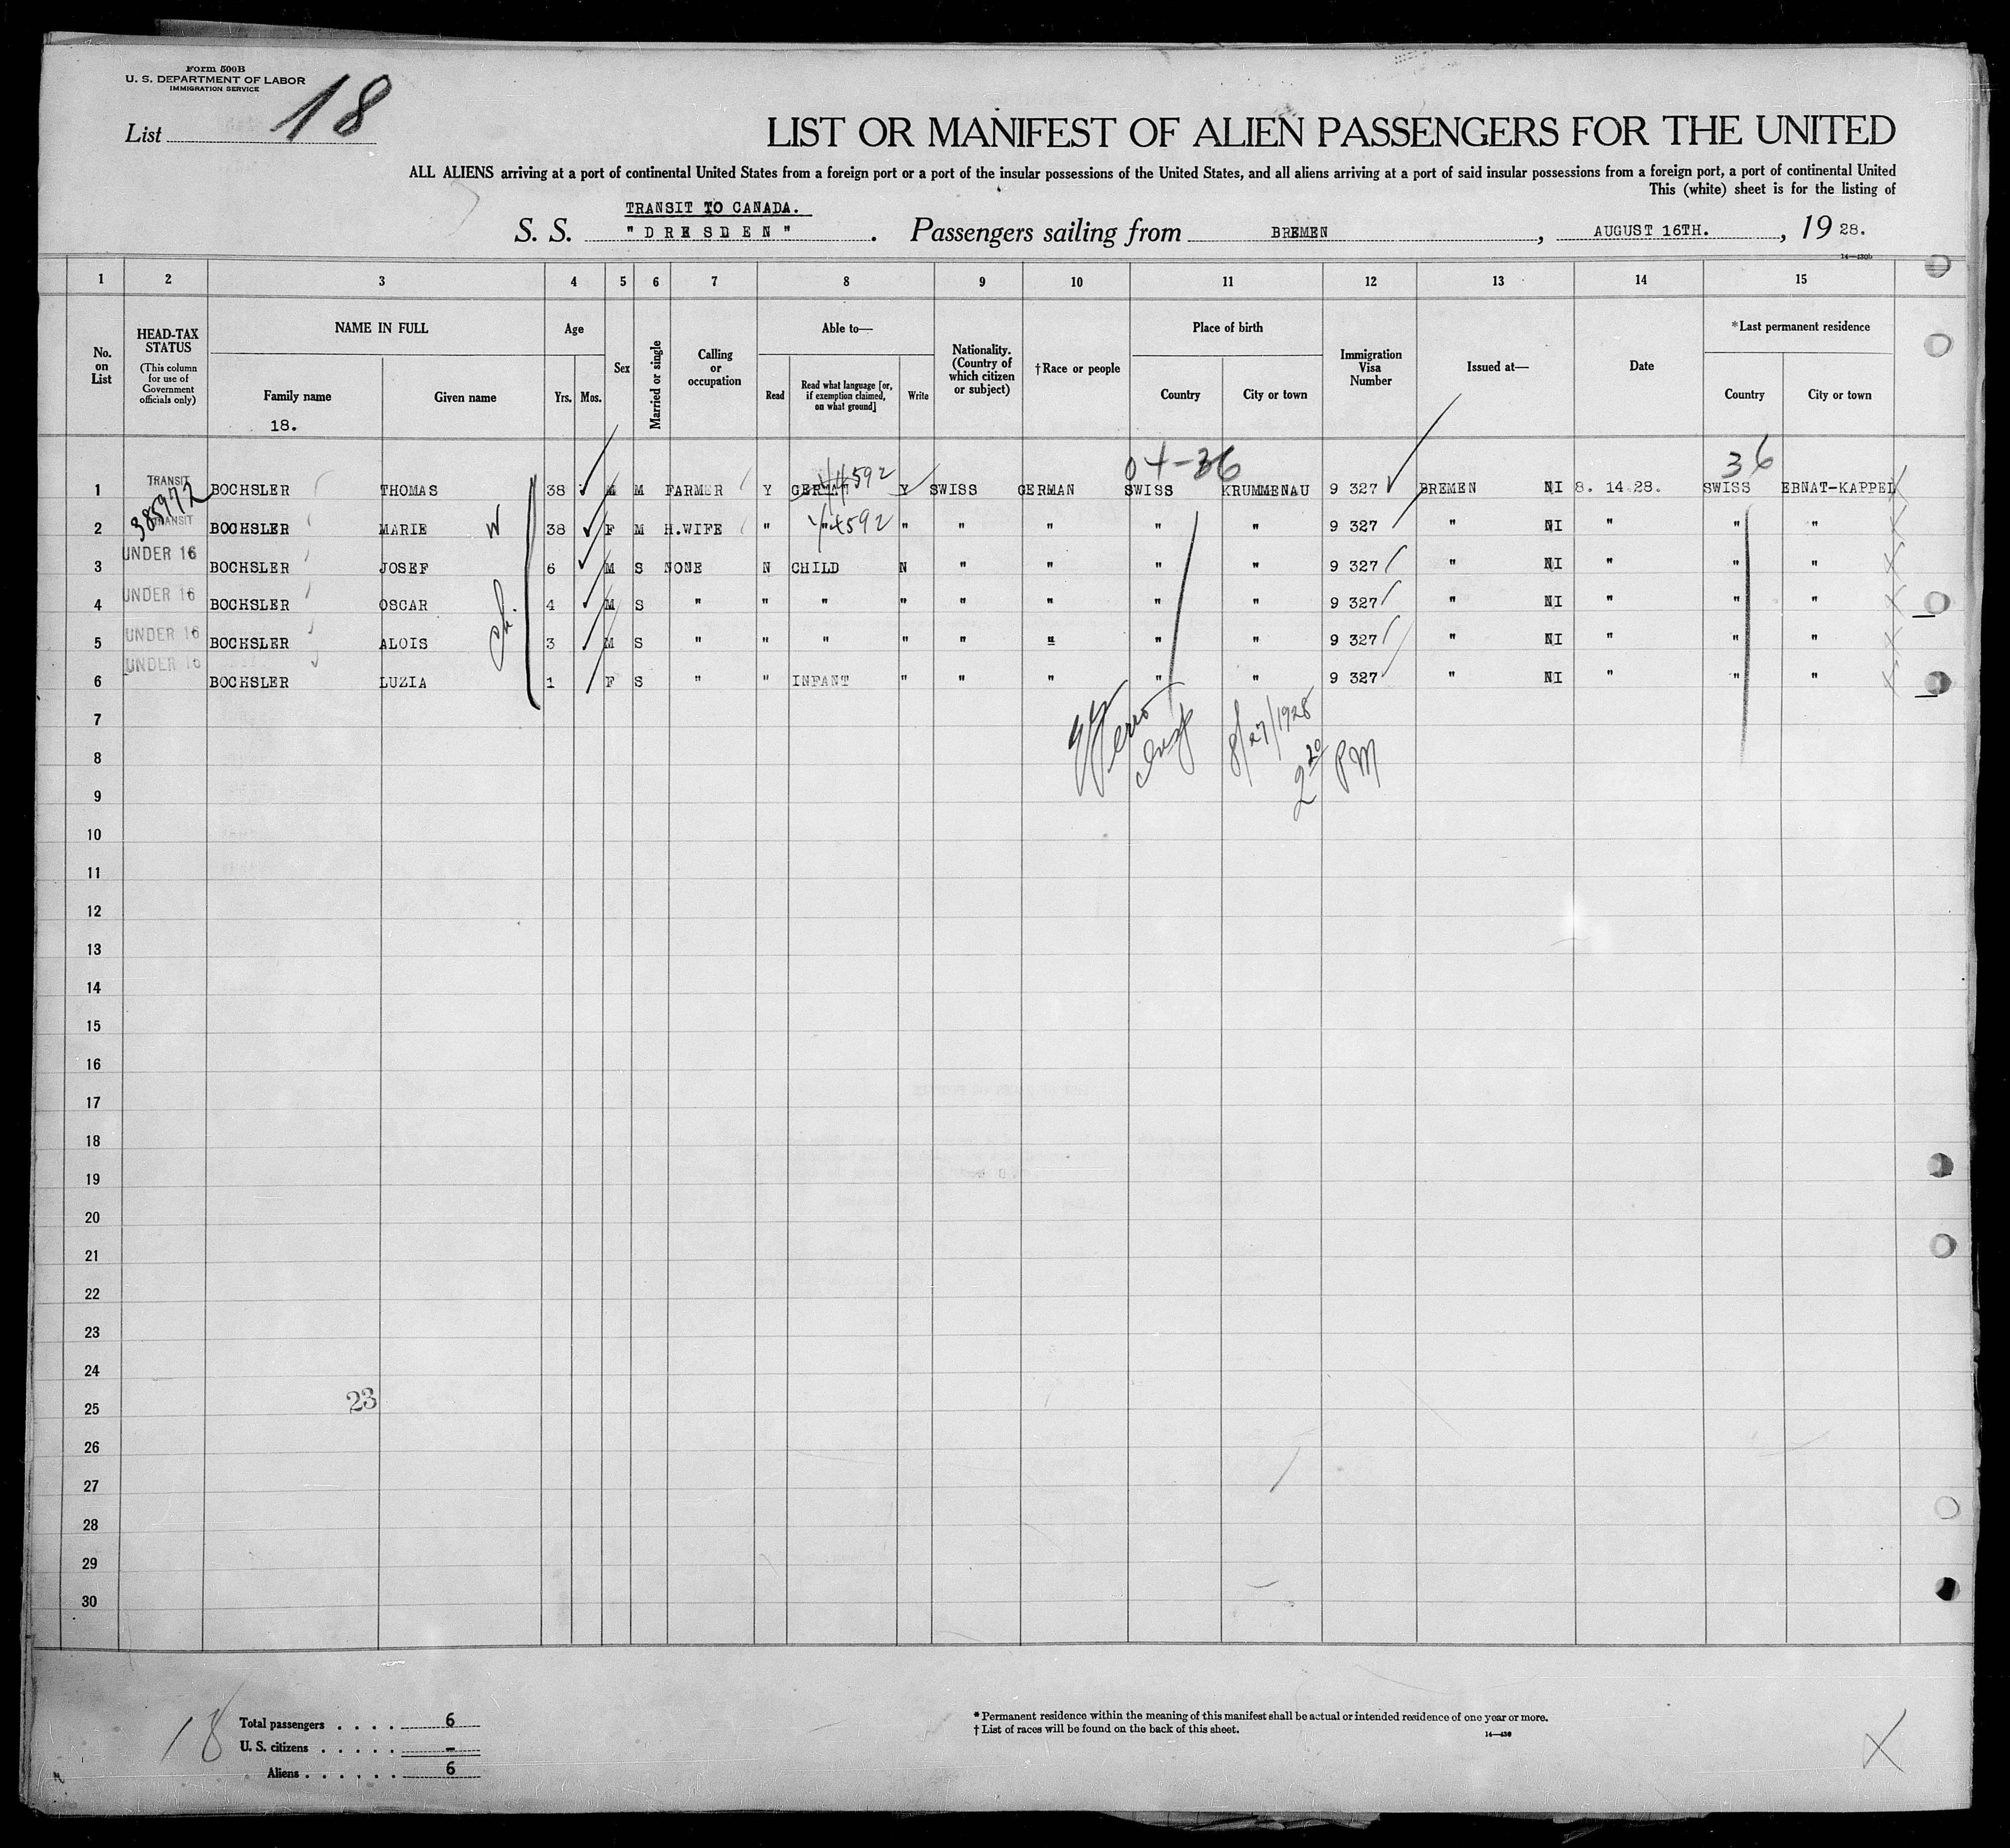 Form 500B
U. S. DEPARTMENT OF LABOR
IMMIGRATION SERVICE
List 18
LIST OR MANIFEST OF ALIEN PASSENGERS FOR THE UNITED
ALL ALIENS arriving at a port of continental United States from a foreign port or a port of the insular possessions of the United States, and all aliens arriving at a port of said insular possessions from a foreign port, a port of continental United
This (white) sheet is for the listing of
TRANSIT TO CANADA.
S. S. "DRESDEN". Passengers sailing from BREMEN, AUGUST 16TH., 1928.
14—430b
1 2 3 4 5 6 7 8 9 10 11 12 13 14 15
No. on List
HEAD-TAX STATUS (This column for use of Government officials only)
NAME IN FULL Family name Given name
Age Yrs. Mos.
Sex
Married or single
Calling or occupation
Able to— Read Read what language [or, if exemption claimed, on what ground] Write
Nationality. (Country of which citizen or subject)
†Race or people
Place of birth Country City or town
Immigration Visa Number
Issued at—
Date
*Last permanent residence Country City or town
18.
04-36 36
1 TRANSIT 385972 BOCHSLER THOMAS 38 M M FARMER Y GERMAN 44592 Y SWISS GERMAN SWISS KRUMMENAU 9 327 BREMEN NI 8. 14.28. SWISS EBNAT-KAPPEL
2 TRANSIT BOCHSLER MARIE W 38 F M H.WIFE " " 44592 " " " " " 9 327 " NI " " "
3 UNDER 16 BOCHSLER JOSEF 6 M S NONE N CHILD N " " " " 9 327 " NI " " "
4 UNDER 16 BOCHSLER OSCAR ch. 4 M S " " " " " " " " 9 327 " NI " " "
5 UNDER 16 BOCHSLER ALOIS 3 M S " " " " " " " " 9 327 " NI " " "
6 UNDER 16 BOCHSLER LUZIA 1 F S " " INFANT " " " " " 9 327 " NI " " "
7
Insp 8/27/1928
8
2 20 PM
9
10
11
12
13
14
15
16
17
18
19
20
21
22
23
24
23
25
26
27
28
29
30
18
Total passengers . . . . 6
U. S. citizens . . . . . -
Aliens . . . . . . 6
* Permanent residence within the meaning of this manifest shall be actual or intended residence of one year or more.
† List of races will be found on the back of this sheet.
14—430
X